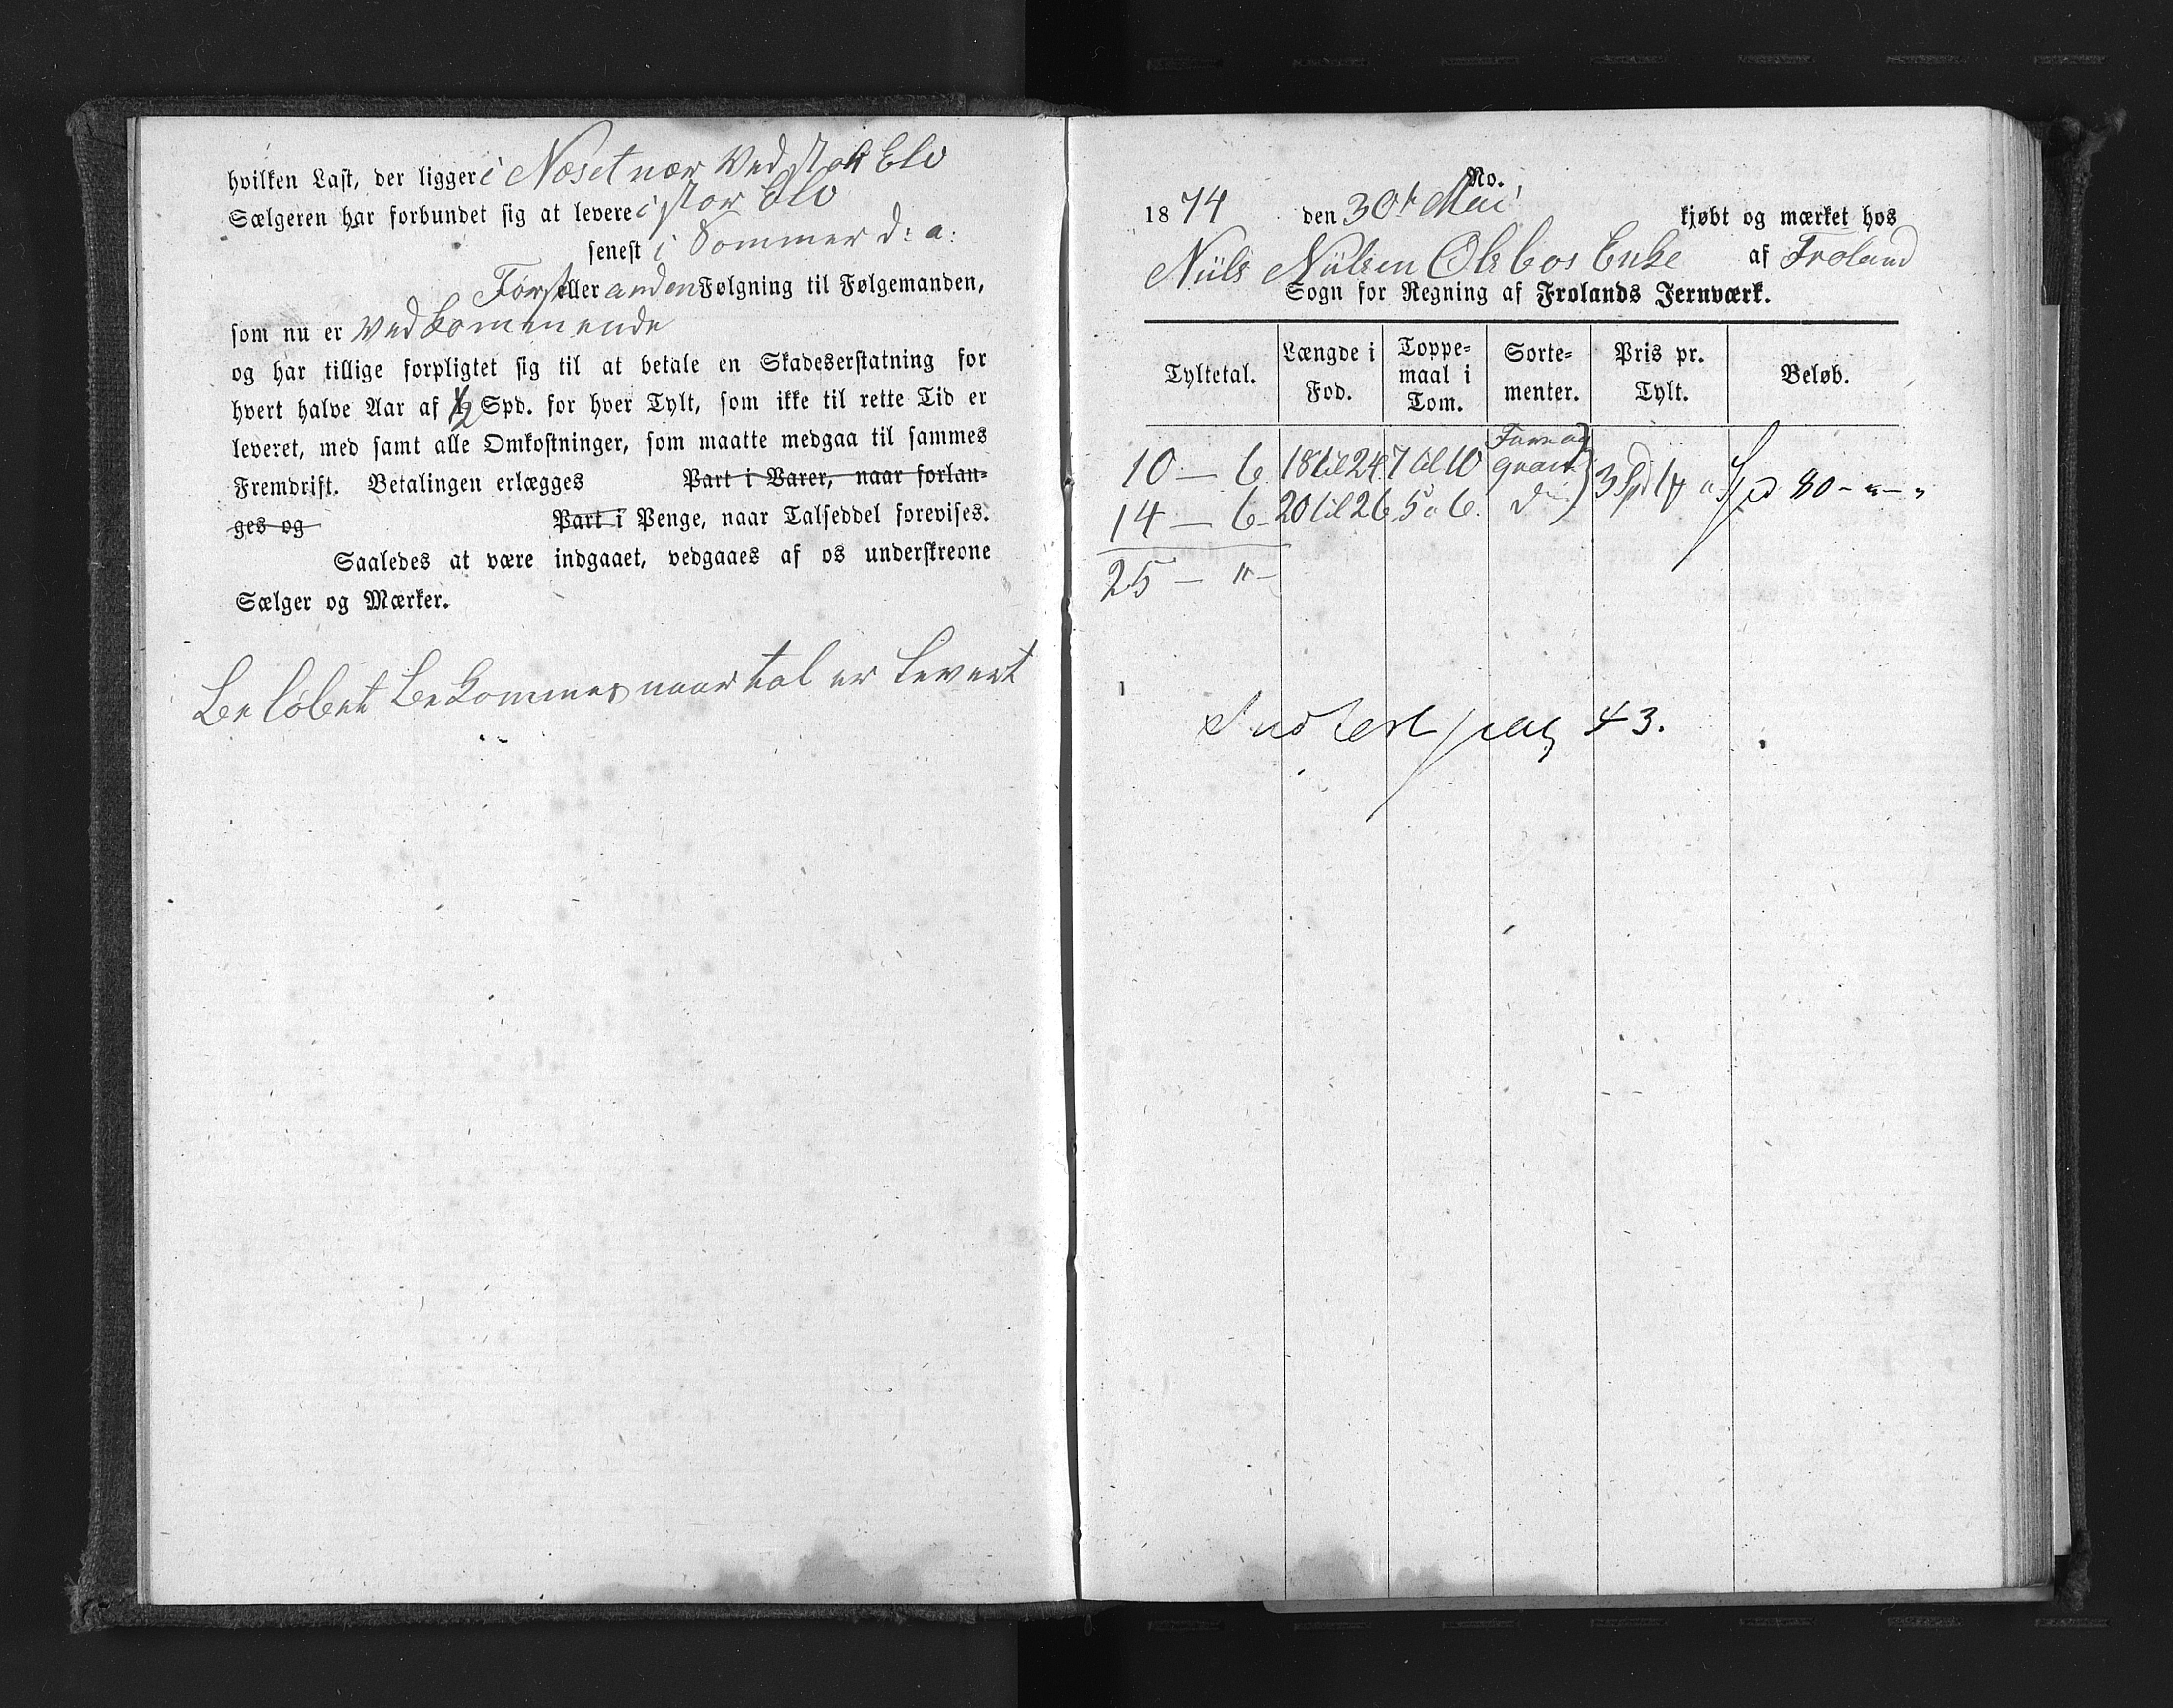 hvilken Last, der ligger i Næset nær Ved stor Elv
Sælgeren har forbundet sig at levere i stor Elv
senest i Sommer d: a:
Først eller anden Følgning til Følgemanden,
som nu er Vedkommende
og har tillige forpligtet sig til at betale en Skadeserstatning for
hvert halve Aar af ½ Spd. for hver Tylt, som ikke til rette Tid er
leveret, med samt alle Omkostninger, som maatte medgaa til sammes
Fremdrift. Betalingen erlægges Part i Varer, naar forlan-
ges og Part i Penge, naar Talseddel forevises.
Saaledes at være indgaaet, vedgaaes af os underskrevne
Sælger og Mærker.
Beløbet bekommes naar tal er levert
No.
1874 den 30t Mai kjøbt og mærket hos
Niils Nilsen Olsbos Enke af Froland
Sogn for Regning af Frolands Jernværk.
Tyltetal. Længde i Fod. Toppe-maal i Tom. Sorte-menter. Pris pr. Tylt. Beløb.
10 — 6 18 til 24 7 til 10 Furu og gran
14 — 6 20 til 26 5 a 6. do 3 Spd Spd 80 - " - "
25 — " -
Indført pag 43.